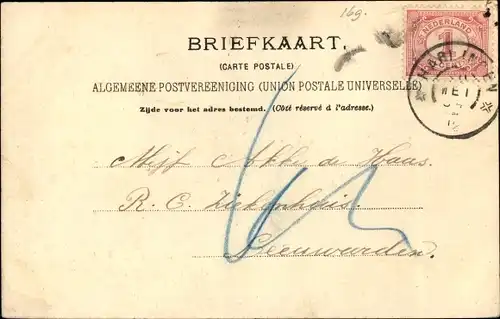 169.
BRIEFKAART.
(CARTE POSTALE)
ALGEMEENE POSTVEREENIGING (UNION POSTALE UNIVERSELLE)
Zijde voor het adres bestemd. (Côté réservé à l'adresse.)
NEDERLAND
1
HARLINGEN
MEI
Mejf Akke de Haas
R. C. Ziekenhuis
Leeuwarden.